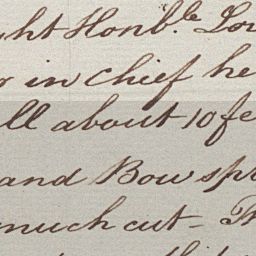 ght Honb.le Lor
r in Chief he
ll about 10 fe
and Bow spr
much cut - Th